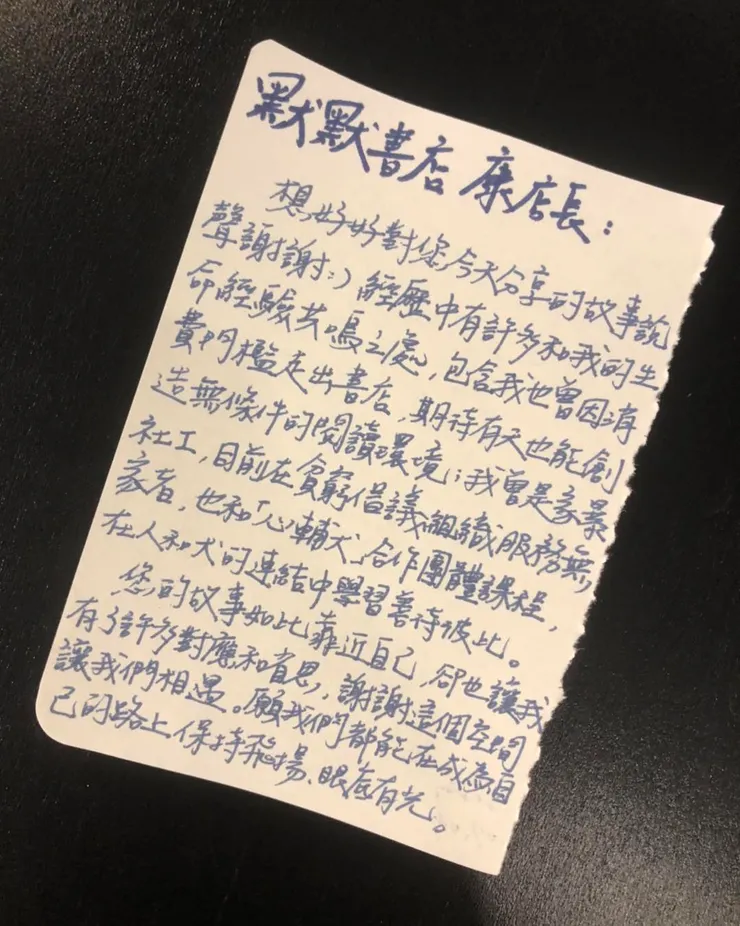 默默書店 康店長：
想好好對您今天分享的故事說
聲謝謝:) 經歷中有許多和我的生
命經驗共鳴之處，包含我也曾因消
費門檻走出書店，期待有天也能創
造無條件的閱讀環境；我曾是家暴
社工，目前在貧窮倡議組織服務無
家者，也和「心輔犬」合作團體課程，
在人和犬的連結中學習善待彼此。
您的故事如此靠近自己，卻也讓我
有了許多對應和省思，謝謝這個空間
讓我們相遇。願我們都能在成為自
己的路上保持飛揚、眼底有光。